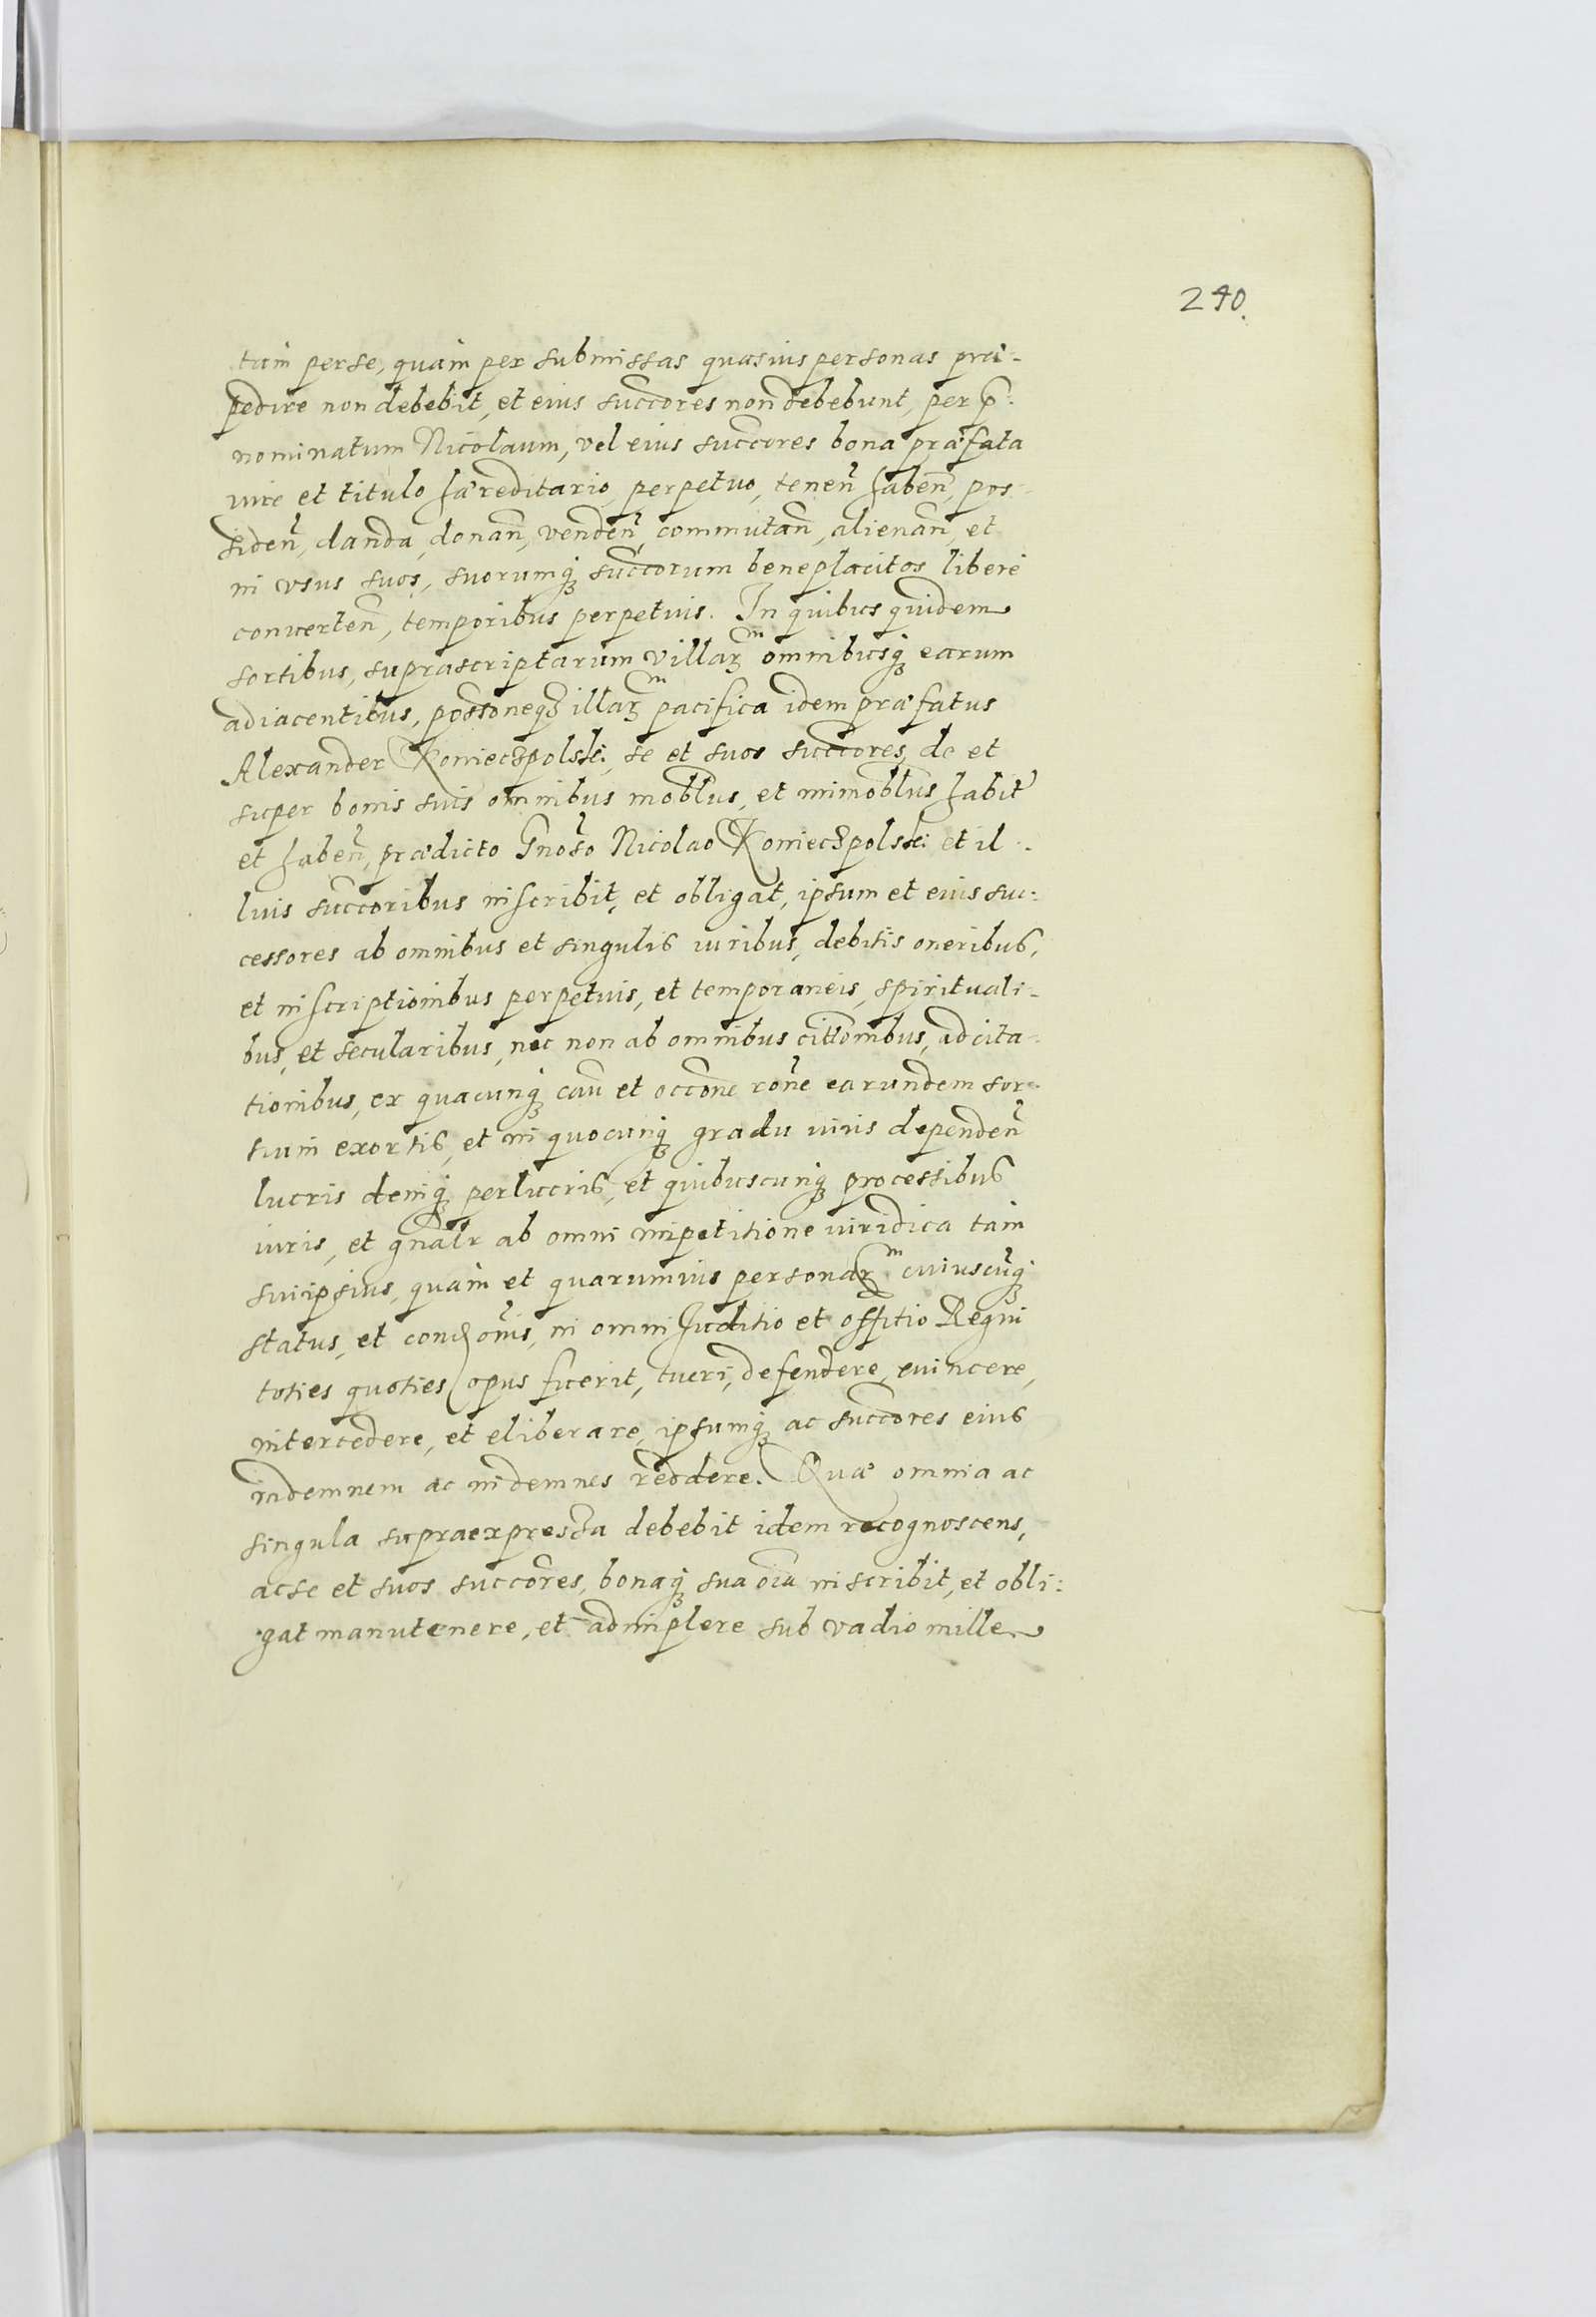 240.
tam per se, quam per submissas quasuis personas præ-
pedire non debebit, et eius succores non debebunt, per p̃:
nominatum Nicolaum, vel eius succores bona præfata
iure et titulo hæreditario, perpetuo, tenen̄, haben̄, pos-
siden̄, danda, donan̄, venden̄, commutan̄, alienan̄, et
in vsus suos, suorumq3 succorum beneplacitos libere
conuerten̄, temporibus perpetuis. In quibus quidem
sortibus, suprascriptarum villar̃ᵐ omnibusq3 earum
adiacentibus, possoneq3 illar̃ᵐ pacifica idem præfatus
Alexander Konieczpolski, se et suos succores, de et
super bonis suis omnibus moblbus, et immoblbus habit̄
et haben̄, prædicto Gnoso Nicolao Konieczpolski et il-
luis succoribus inscribit, et obligat, ipsum et eius suc:
cessores ab omnibus et singulis iuribus, debitis oneribus,
et inscriptionibus perpetuis, et temporaneis, spirituali-
bus, et secularibus, nec non ab omnibus cittonibus, adcita-
tionibus, ex quacunq3 cau et occone rone earundem sor-
tium exortis, et in quocunq3 gradu iuris dependen̄
lucris deniq3 perlucris, et quibuscunq3 processibus
iuris, et gnalr ab omni impetitione iuridica tam
suiipsius, quam et quarumuis personar̃ᵐ cuiuscuq3
status, et condonis, in omni Juditio et offitio Regni
toties quoties opus fuerit, tueri, defendere, euincere,
intercedere, et eliberare, ipsumq3 ac succores eius
indemnem ac indemnes reddere. Quæ omnia ac
singula supraexpressa debebit idem recognoscens,
ac se et suos succores, bonaq3 sua oia inscribit, et obli:
gat manutenere, et adimplere sub vadio mille